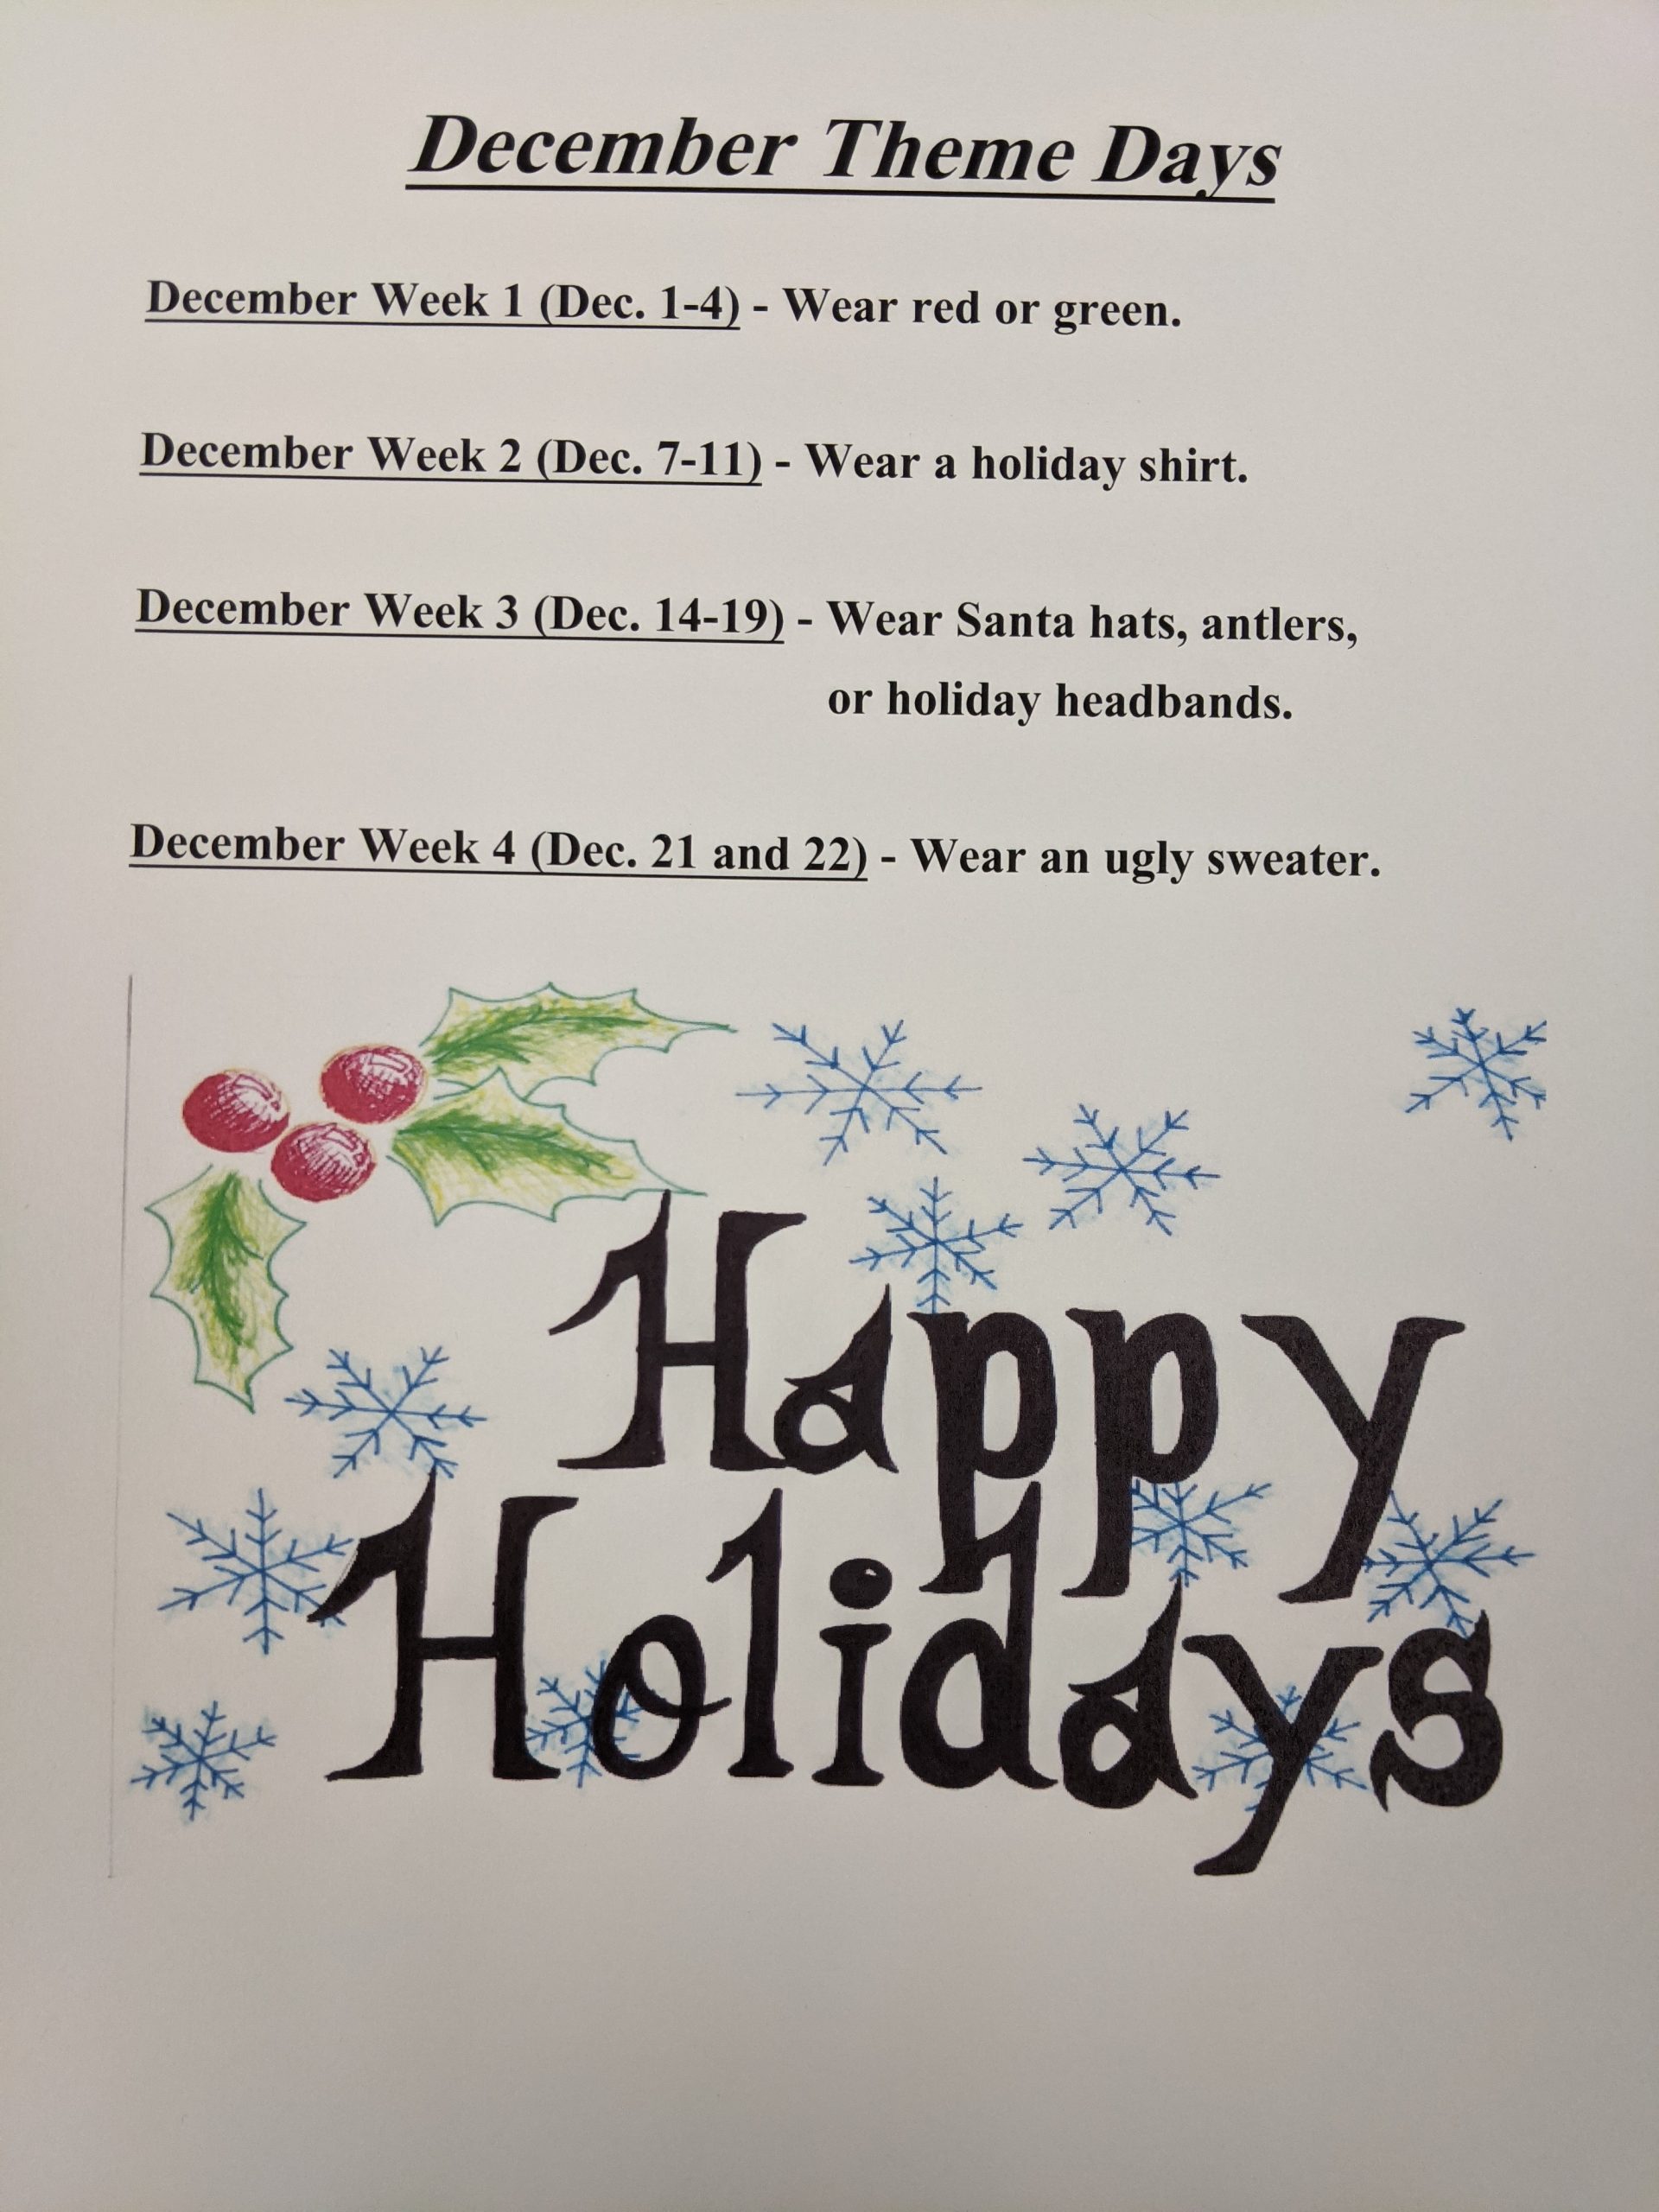 December Theme Days
December Week 1 (Dec. 1-4) - Wear red or green.
December Week 2 (Dec. 7-11) - Wear a holiday shirt.
December Week 3 (Dec. 14-19) - Wear Santa hats, antlers,
or holiday headbands.
December Week 4 (Dec. 21 and 22) - Wear an ugly sweater.
Happy
Holidays